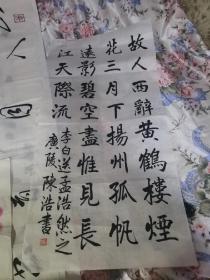 故人西辭黃鶴樓煙
花三月下揚州孤帆
遠影碧空盡惟見長
江天際流
李白送孟浩然之
廣陵 陳浩書
人